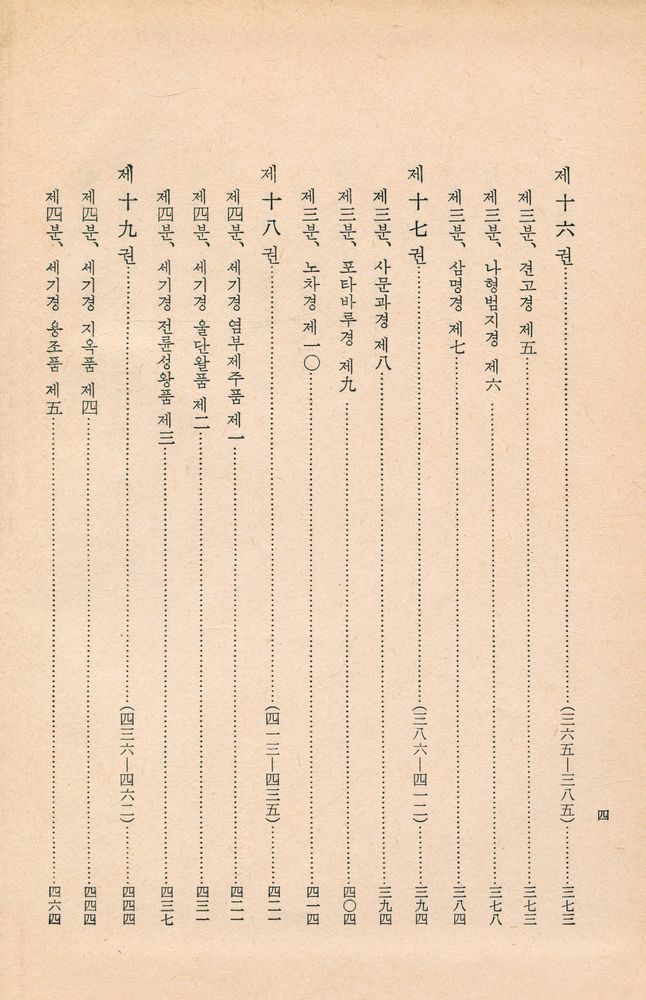 四
제十六권 (三六五―三八五) 三七三
제三분、 견고경 제五 三七三
제三분、 나형범지경 제六 三七八
제三분、 삼명경 제七 三八四
제十七권 (三八六―四一二) 三九四
제三분、 사문과경 제八 三九四
제三분、 포타바루경 제九 四〇四
제三분、 노차경 제一〇 四一四
제十八권 (四一三―四三五) 四二一
제四분、 세기경 염부제주품 제一 四二一
제四분、 세기경 울단왈품 제二 四三一
제四분、 세기경 전륜성왕품 제三 四三七
제十九권 (四三六―四六二) 四四四
제四분、 세기경 지옥품 제四 四四四
제四분、 세기경 용조품 제五 四六四